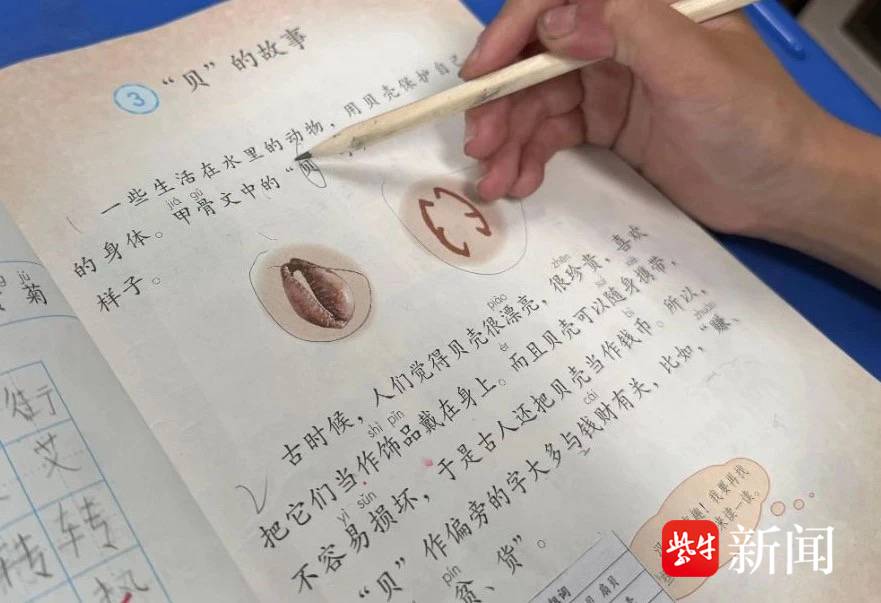 3 “贝”的故事
一些生活在水里的动物，用贝壳保护自己
jiǎ gǔ
的身体。甲骨文中的“贝
样子。
piào zhēn
古时候，人们觉得贝壳很漂亮，很珍贵，喜欢
shì pǐn
把它们当作饰品戴在身上。而且贝壳可以随身携带，
yì sǔn bì
不容易损坏，于是古人还把贝壳当作钱币。所以，
cái zhuàn
“贝”作偏旁的字大多与钱财有关，比如，“赚、
pín
贫、货”。
趣！我要再找
来读一读。
组词
扇贝
jú
菊
街
艾
转 转
热
紫牛 新闻